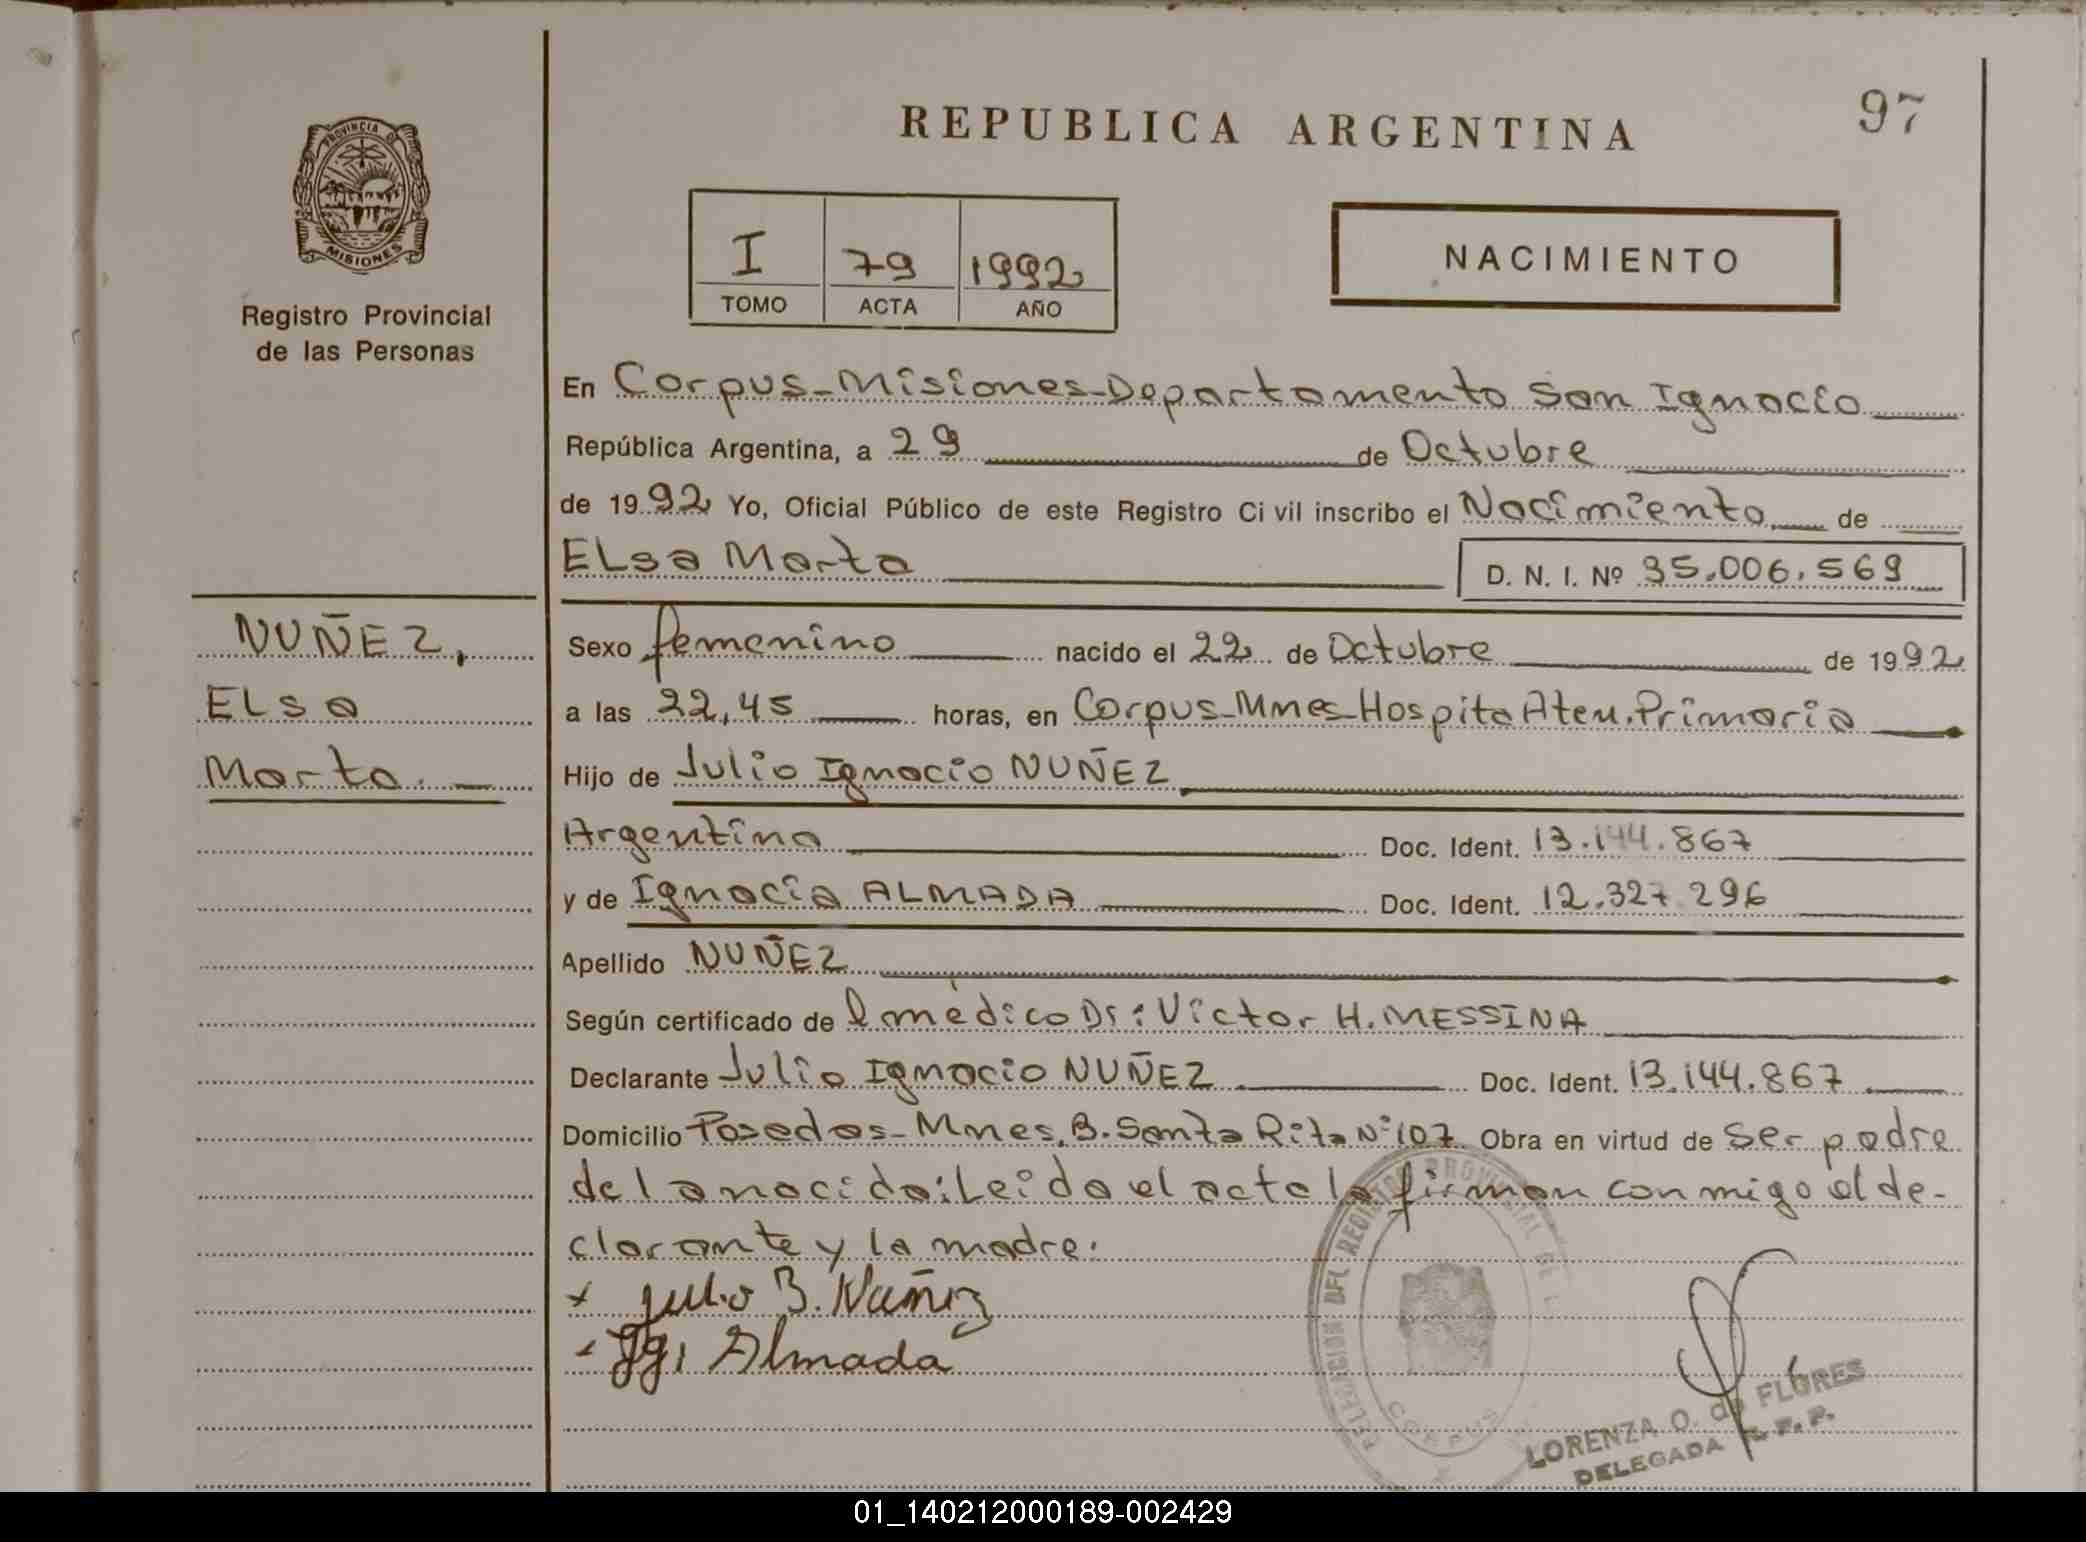 97
REPUBLICA ARGENTINA
PROVINCIA DE
MISIONES
Registro Provincial
de las Personas
I 79 1992
TOMO ACTA AÑO
NACIMIENTO
En Corpus-Misiones-Departamento San Ignacio
República Argentina, a 29 de Octubre
de 1992 Yo, Oficial Público de este Registro Ci vil inscribo el Nacimiento de
ELsa Marta D. N. I. Nº 35.006.569
NUÑEZ,
ELsa
Marta.
Sexo femenino nacido el 22 de Octubre de 1992
a las 22,45 horas, en Corpus-Mnes-Hospita Aten.Primaria
Hijo de Julio Ignacio NUÑEZ
Argentina Doc. Ident. 13.144.867
y de Ignacia ALMADA Doc. Ident. 12.327 296
Apellido NUÑEZ
Según certificado de l médico Dr: Victor H. MESSINA
Declarante Julio Ignacio NUÑEZ Doc. Ident. 13.144.867
Domicilio Posadas-Mnes.B.Santa Rita Nº 107 Obra en virtud de ser padre
de la nacida: Leida el acta la firman conmigo el de-
clarante y la madre.
x Julio Nuñez
Almada
DELEGACION DEL REGISTRO PROVINCIAL DE L
CORPUS
LORENZA O. de FLORES
DELEGADA R.P.P.
01_140212000189-002429